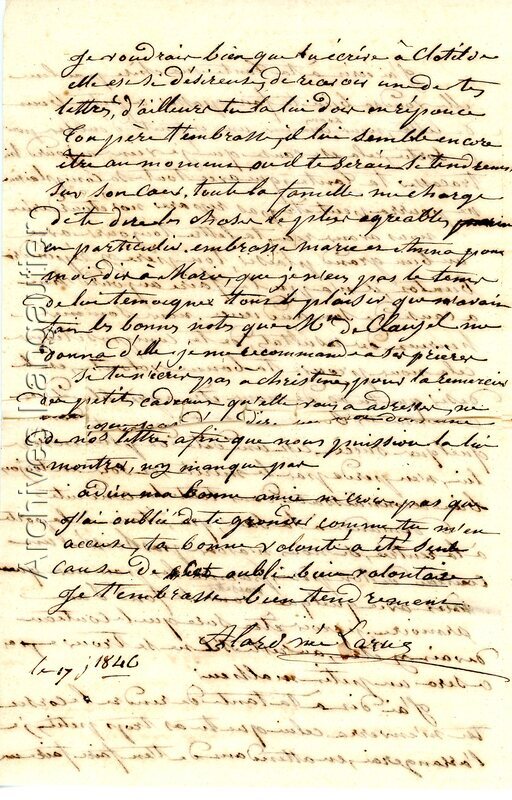 Je voudrais bien que tu écrive à Clotilde
elle est si désireuse, de recevoir une de tes
lettres, d'ailleurs tu la lui dois en réponce
Ton pere t'embrasse, il lui semble encore
être au moment ou il te serais si tendrement
sur son cœur, toute la famille me charge
de te dire les chose les plus agréables
en particulier, embrasse marie et Anna pour
moi, dis à Marie, que je n'eus pas le tems
de lui temoigner tout le plaisir que m'avait
fait les bonnes notes que Mme De Clausel me
donna d'elle je me recommande à ses prières
Si tu n'écris pas à christine, pour la remercier
des petits cadeaux qu'elle vous a adresser, ne
dire un
de nos lettres afin que nous puission la lui
montrer, n'y manque pas
adieu ma bonne amie ne crois pas que
j'ai oublié de te gronder comme tu m'en
accuse, ta bonne volonté a été seule
cause de cet oubli bien volontaire
Je t'embrasse bien tendrement
Alard née Larue
le 17 j 1846
Archives Langautier